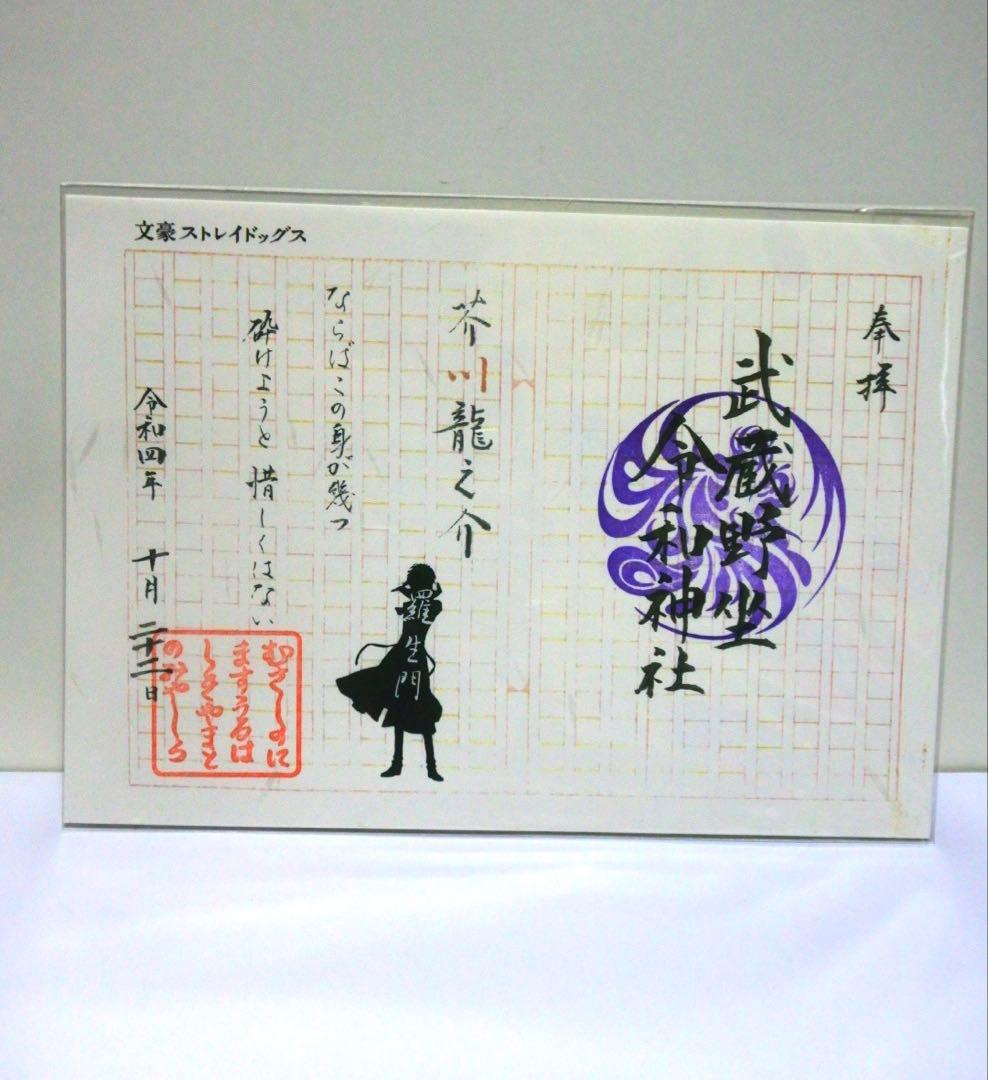 文豪ストレイドッグス
奉拝
武蔵野坐
令和神社
芥川龍之介
羅生門
ならばこの身が幾つ
砕けようと惜しくはない
令和四年 十月 二十二日
むさしのに
ますうるは
しきやまと
のみやしろ